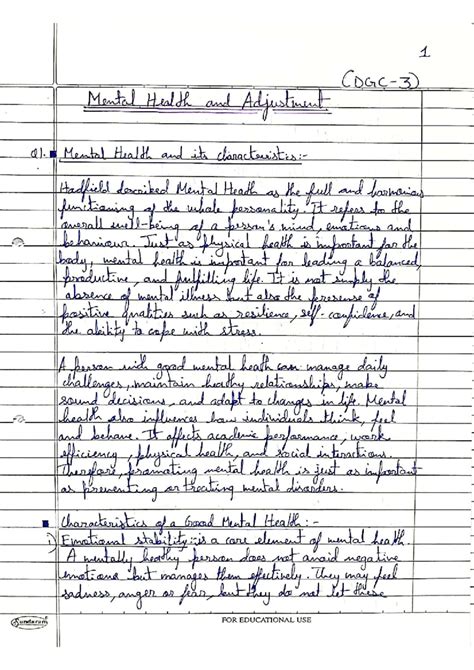 1
(DGC-3)
Mental Health and Adjustment
Q1. ■ Mental Health and its characteristics:-
Hadfield described Mental Heath as the full and harmonious
functioning of the whole personality. It refers to the
overall well-being of a person's mind, emotions and
behaviour. Just as physical health is important for the
body, mental health is important for leading a balanced,
productive, and fulfilling life. It is not simply the
absence of mental illness but also the presense of
positive qualities such as resilience, self-confidence, and
the ability to cope with stress.
A person with good mental health can manage daily
challenges, maintain healthy relationships, make
sound decisions, and adapt to changes in life. Mental
health also influences how individuals think, feel
and behave. It affects academic performance, work
efficiency, physical health, and social interactions.
Therefore, promoting mental health is just as important
as preventing or treating mental disorders.
■ Characteristics of a Good Mental Health:-
i) Emotional stability:- is a core element of mental health.
A mentally healthy person does not avoid negative
emotions but manages them effectively. They may feel
sadness, anger or fear, but they do not let these
Sundaram
FOR EDUCATIONAL USE